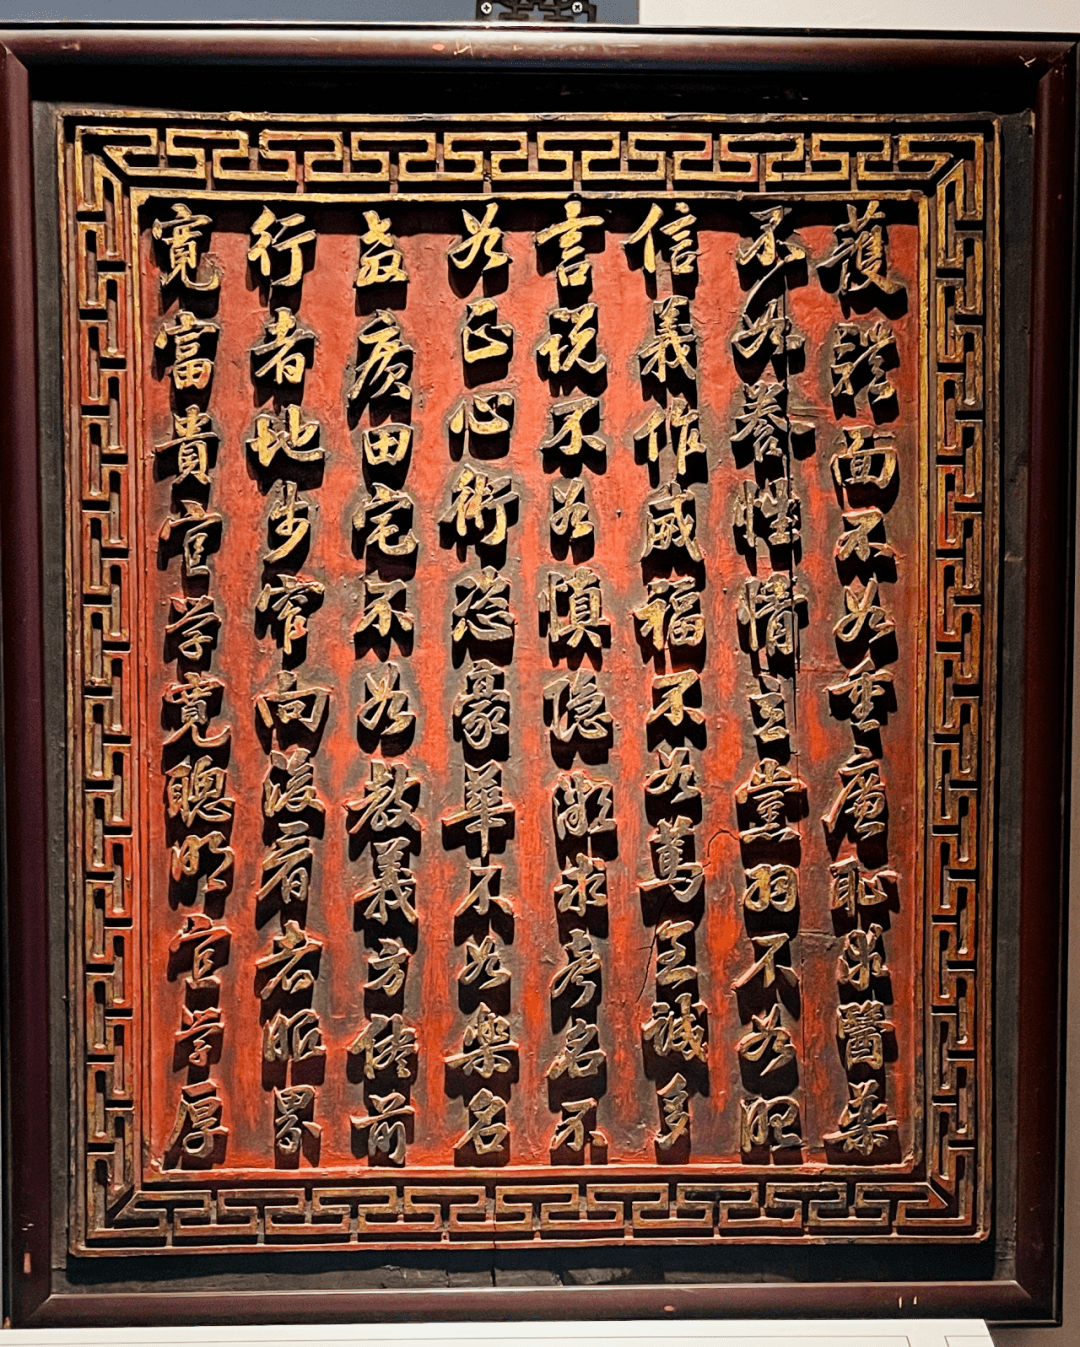 護體面不如重廉恥求醫藥
不如養性情立黨羽不如昭
信義作威福不如篤至誠多
言説不如慎隐微求聲名不
如正心術恣豪華不如樂名
教廣田宅不如教義方儘前
行者地步窄向後看者眼界
寬富貴宜学寬聰明宜学厚